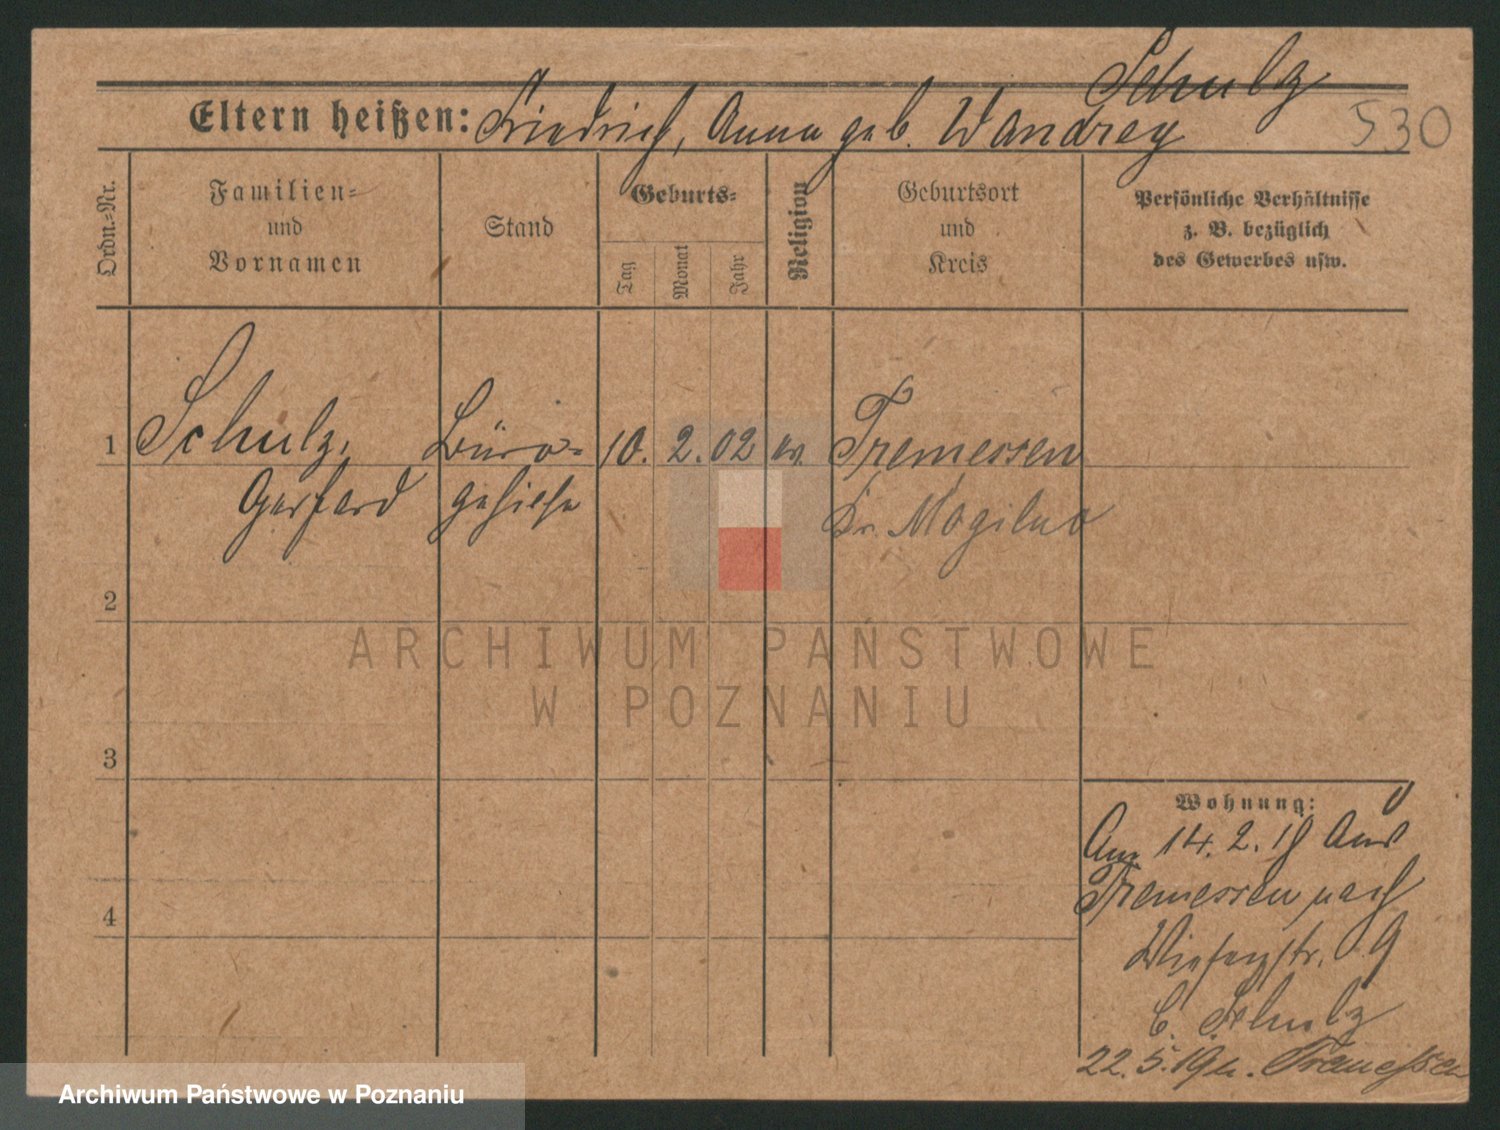 Schulz
Eltern heißen: Friedrich, Anna geb. Wandrey
530
Ordn.-Nr.
Familien-
und
Vornamen
Stand
Geburts-
Tag
Monat
Jahr
Religion
Geburtsort
und
Kreis
Persönliche Verhältnisse
z. B. bezüglich
des Gewerbes usw.
1 Schulz, Büro- 10. 2. 02 ev. Tremessen
Gerhard gehilfe Kr. Mogilno
2
ARCHIWUM PAŃSTWOWE
W POZNANIU
3
Wohnung:
Am 14. 2. 18 aus
Tremessen nach
str. 9
Schulz
4
22. 5. 19 n. Tremessen
Archiwum Państwowe w Poznaniu